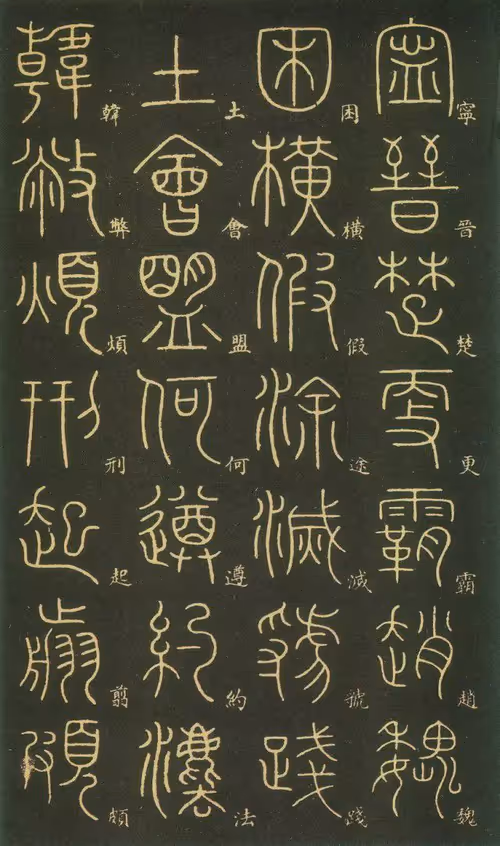 寧晉楚更霸趙魏
困橫假途滅虢踐
土會盟何遵約法
韓弊煩刑起剪頗